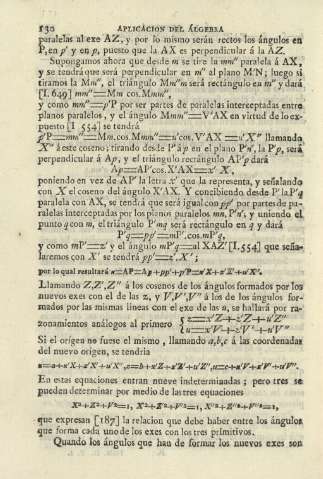 130 APLICACION DEL ÁLGEBRA
paralelas al exe AZ, y por lo mismo serán rectos los ángulos en
P, en p' y en p, puesto que la AX es perpendicular á la AZ.
Supongamos ahora que desde m se tire la mm'' paralela á AX,
y se tendrá que será perpendicular en m'' al plano M'N; luego si
tiramos la Mm'', el triángulo Mm''m será rectángulo en m'' y dará
[I. 649] mm''=Mm cos. Mmm'',
y como mm''=p'P por ser partes de paralelas interceptadas entre
planos paralelos, y el ángulo Mmm''=V'AX en virtud de lo ex-
puesto [I. 554] se tendrá
p'P=mm''=Mm. cos. Mmm''=u'cos. V'AX=u'X'' llamando
X'' á este coseno; tirando desde P' á p en el plano P'n', la P'p, será
perpendicular á Ap, y el triángulo rectángulo AP'p dará
Ap=AP'cos. X'AX=x' X,
poniendo en vez de AP' la letra x' que la representa, y señalando
con X el coseno del ángulo X'AX. Y concibiendo desde P' la P'q
paralela con AX, se tendrá que será igual con pp' por partes de pa-
ralelas interceptadas por los planos paralelos mn, P'n', y uniendo el
punto q con m, el triángulo P'mq será rectángulo en q y dará
P'q=pp'=mP'. cos. mP'q,
y como mP'=z' y el ángulo mP'q=al XAZ' [I. 554] que seña-
laremos con X' se tendrá pp'=z'. X';
por lo qual resultará x=AP=Ap+pp'+p'P=x'X+z'X'+u'X''.
Llamando Z, Z', Z'' á los cosenos de los ángulos formados por los
nuevos exes con el de las z, y V, V', V'' á los de los ángulos for-
mados por las mismas lineas con el exe de las u, se hallará por ra-
zonamientos análogos al primero { z=x'Z+z'Z'+u'Z''
u=x'V+z'V'+u'V''
Si el origen no fuese el mismo, llamando a, b, c á las coordenadas
del nuevo origen, se tendria
x=a+x'X+z'X'+u'X'', z=b+x'Z+z'Z'+u'Z'', u=c+x'V+z'V'+u'V''.
En estas equaciones entran nueve indeterminadas; pero tres se
pueden determinar por medio de las tres equaciones
X²+Z²+V²=1, X'²+Z'²+V'²=1, X''²+Z''²+V''²=1,
que expresan [187] la relacion que debe haber entre los ángulos
que forma cada uno de los exes con los tres primitivos.
Quando los ángulos que han de formar los nuevos exes son